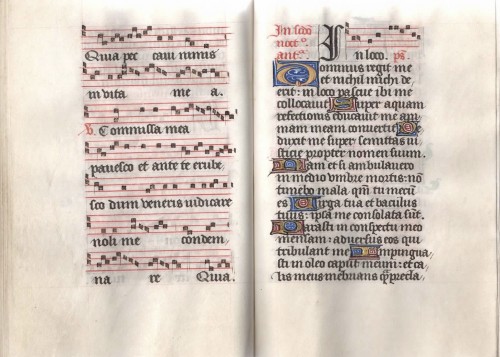 Quia pec caui nimis
in vita me a.
V. Commissa mea
pavesco et ante te erube
sco dum veneris iudicare
noli me condem,
na re Quia.
In seco
noct°.
ant°. In loco. ps.
Dominus regit me
et nichil michi de
erit: in loco pascue ibi me
collocauit Super aquam
refectionis educauit me ani
mam meam conuertit De
duxit me super semitas iu
sticie propter nomen suum.
Nam et si ambulauero
in medio vmbre mortis: no
timebo mala qm tu mecu
es Virga tua et baculus
tuus: ipsa me consolata sut.
Parasti in conspectu meo
mensam: aduersus eos qui
tribulant me Impingua
sti in oleo caput meum: et ca
lix meus inebrians